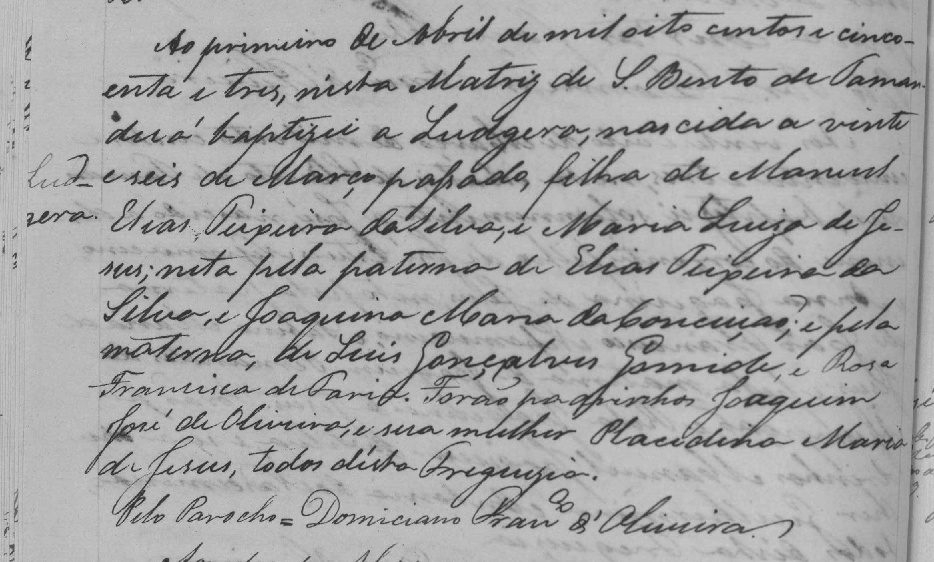 Ao primeiro de Abril de mil oito centos e cinco-
enta e tres, nesta Matriz de S. Bento de Taman-
duá baptizei a Ludgera, nascida a vinte
Lud-
gera.
e seis de Março passado, filha de Manuel
Elias Teixeira da Silva, e Maria Luiza de Je-
sus; neta pela paterna de Elias Teixeira da
Silva, e Joaquina Maria da Conceição; e pela
materna, de Luis Gonçalves Gomide, e Rosa
Francisca de Faria. Forão padrinhos Joaquim
José de Oliveira, e sua mulher Placedina Maria
de Jesus, todos désta Freguezia.
Pelo Parocho = Domiciano Fran.co d' Oliveira